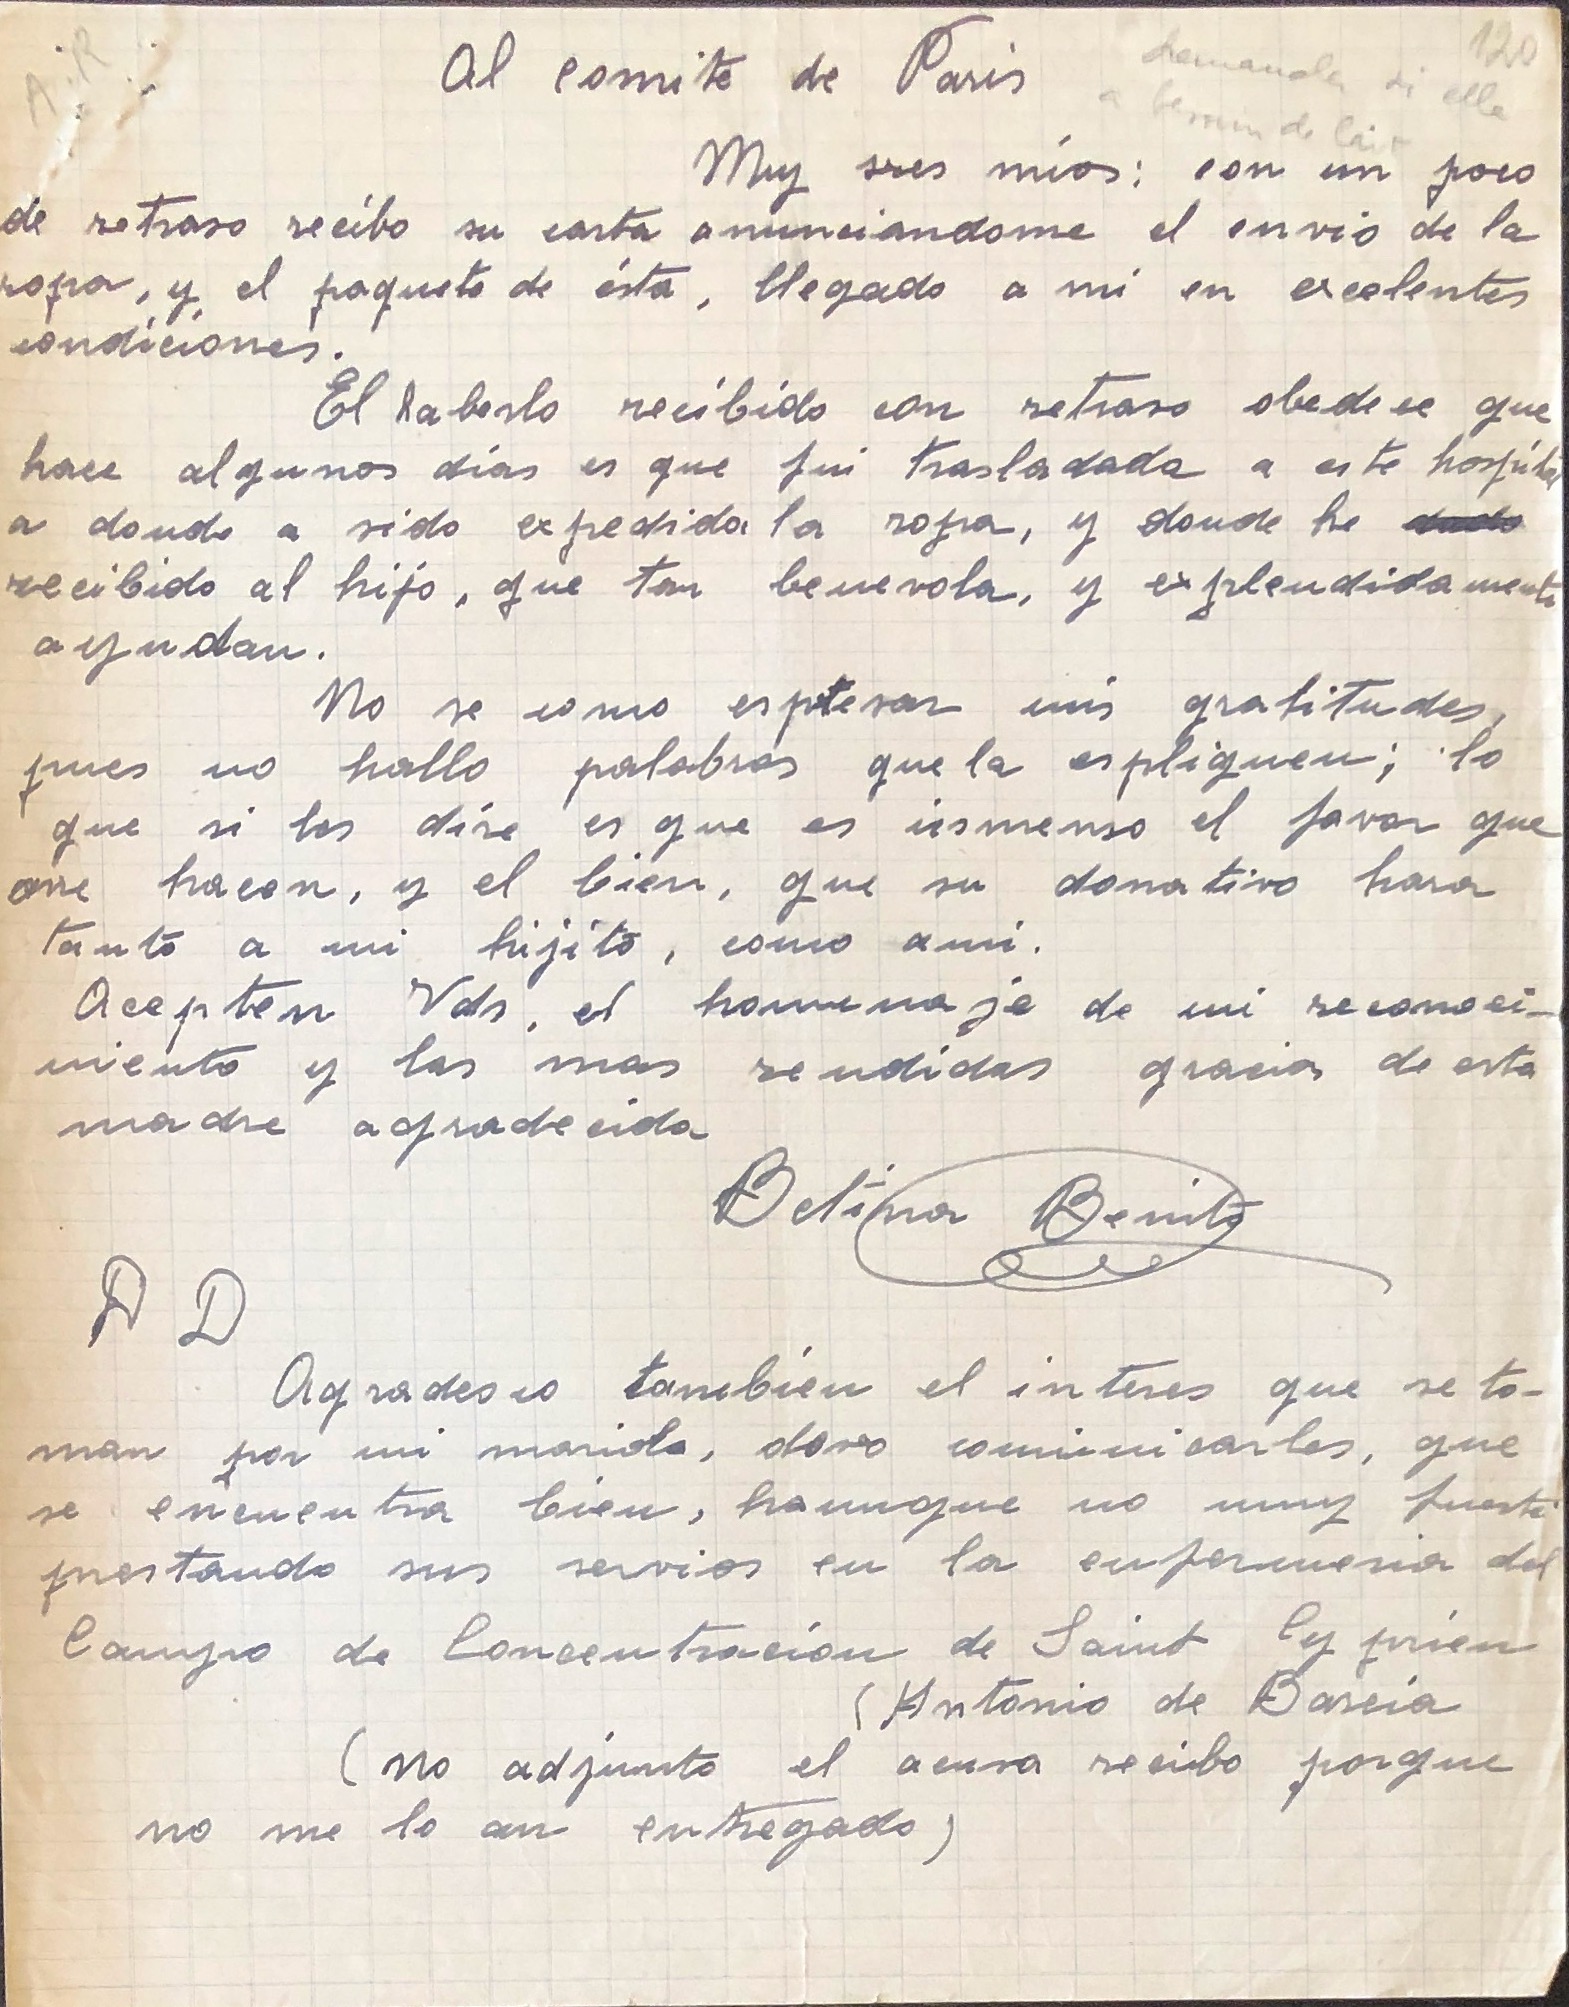 A.R
120
demander si elle
a besoin de lait
Al comite de Paris
Muy sres mios: con un poco
de retraso recibo su carta anunciandome el envio de la
ropa, y, el paquete de ésta, llegado a mi en excelentes
condiciones.
El haberlo recibido con retraso obedece que
hace algunos dias es que fui trasladada a este hospital
a donde a sido expedida la ropa, y donde he dado
recibido al hijo, que tan benevola, y explendidamente
ayudan.
No se como espresar mis gratitudes,
pues no hallo palabras que la espliquen; lo
que si les dire es que es inmenso el favor que
me hacen, y el bien, que su donativo hara
tanto a mi hijito, como a mi.
Acepten Vds, el homenaje de mi reconoci-
miento y las mas rendidas gracias de esta
madre agradecida
Betina Benito
P D
Agradesco tambien el interes que se to-
man por mi marido, devo comunicarles, que
se encuentra bien, haunque no muy fuerte
prestando sus servios en la enfermeria del
Campo de Concentracion de Saint Cyprien
(Antonio de Barcia
(No adjunto el acusa recibo porque
no me lo an entregado)